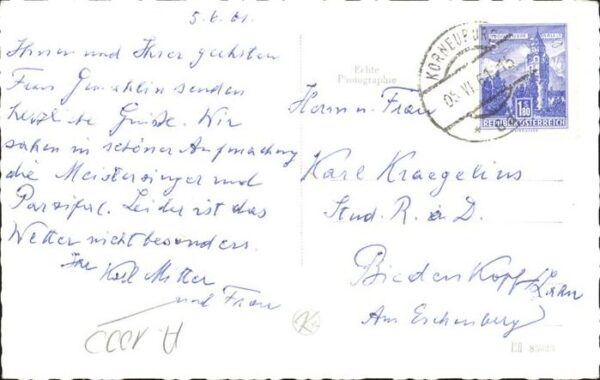 5.6.61.
Ihnen und Ihrer geehrten
Frau Gemahlin senden
herzliche Grüße. Wir
sahen in schöner Aufmachung
die Meistersinger und
Parsifal. Leider ist das
Wetter nicht besonders.
Ihr Karl Mitter
und Frau
A 1000
Echte
Photographie
KORNEUBURG
05.VI.61-15
1.80
REPUBLIK ÖSTERREICH
Herrn u. Frau
Karl Kraegelius
Stud. R. a. D.
Biedenkopf/Lahn
Am Eschenberg